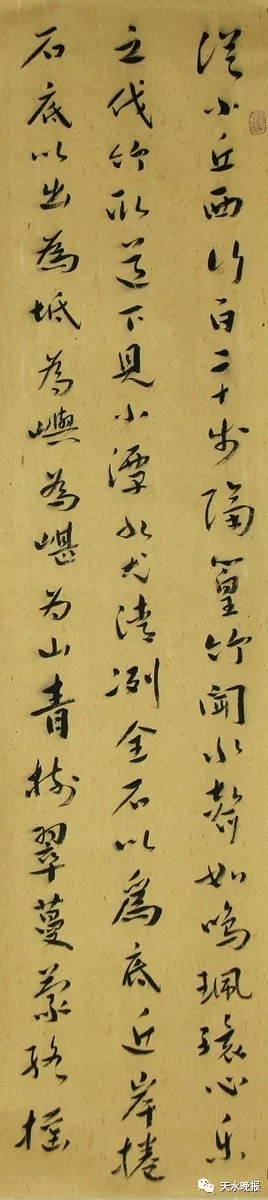 從小丘西行百二十步隔篁竹聞水聲如鳴珮環心樂
之伐竹取道下見小潭水尤清冽全石以為底近岸捲
石底以出為坻為嶼為嵁为山青樹翠蔓蒙絡搖
天水晚报